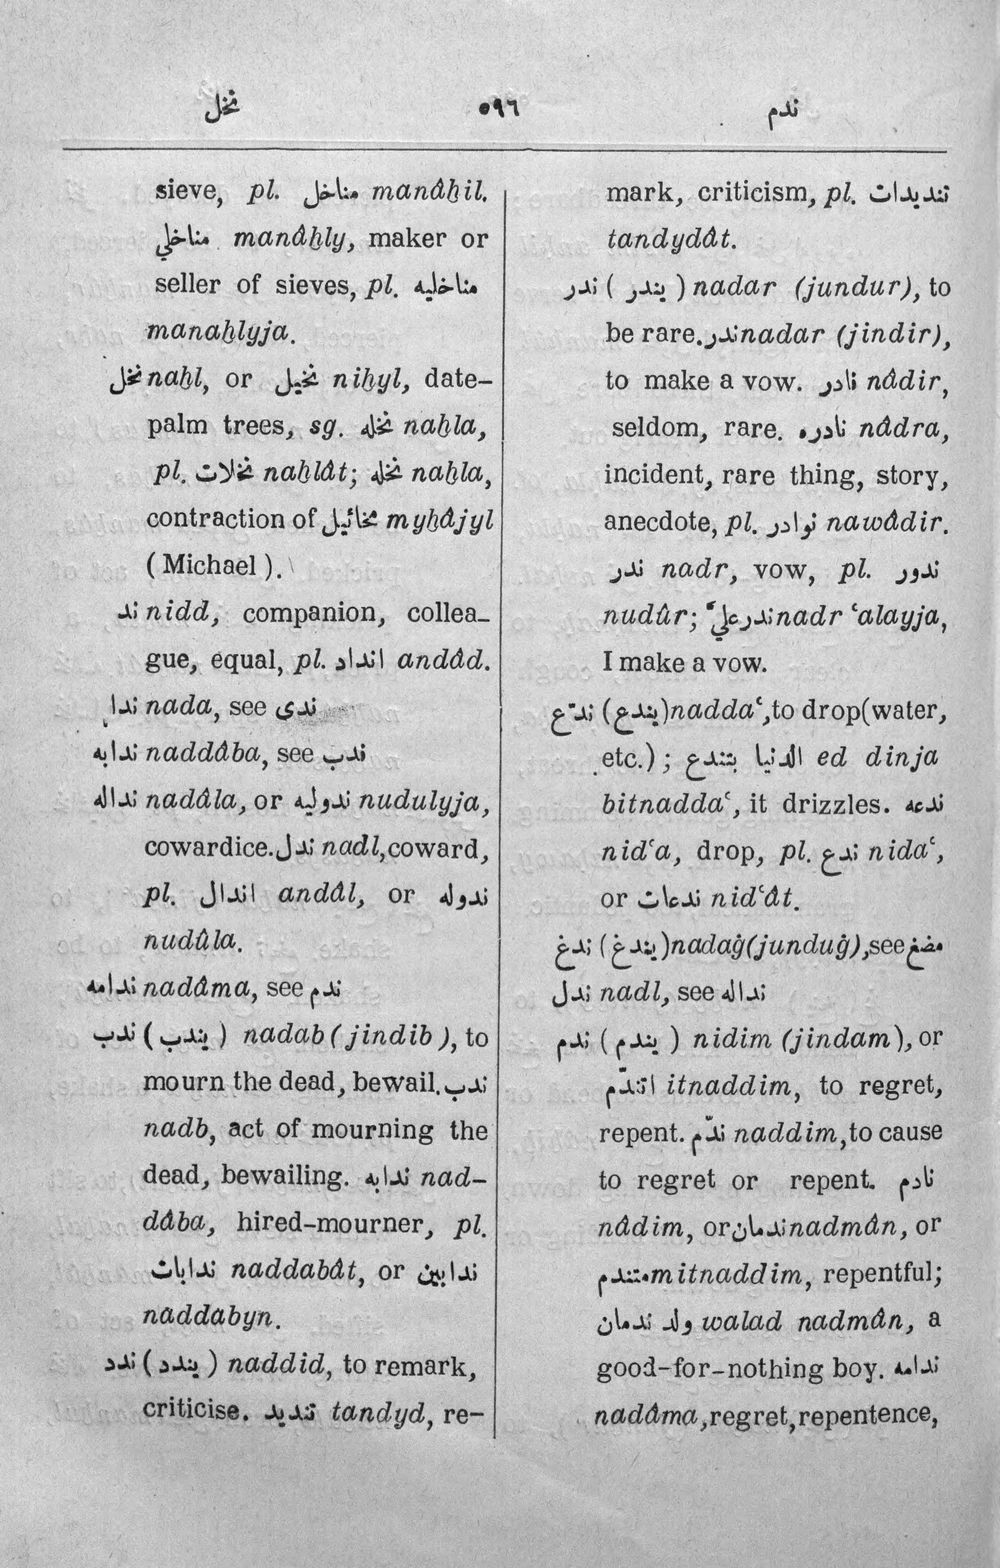 نخل ٥٩٦ ندم
sieve, pl. مناخل manâḫil.
مناخلي manâḫly, maker or
seller of sieves, pl. مناخليه
manaḫlyja.
نخل naḫl, or نخيل niḫyl, date-
palm trees, sg. نخله naḫla,
pl. نخلات naḫlât; نخله naḫla,
contraction of مخائيل myḫâjyl
(Michael).
ند nidd, companion, collea-
gue, equal, pl. انداد andâd.
ندا nada, see ندى
ندابه naddâba, see ندب
نداله nadâla, or ندوليه nudulyja,
cowardice. ندل nadl, coward,
pl. اندال andâl, or ندوله
nudûla.
ندامه nadâma, see ندم
ندب (يندب) nadab (jindib), to
mourn the dead, bewail. ندب
nadb, act of mourning the
dead, bewailing. ندابه nad-
dâba, hired-mourner, pl.
ندابات naddabât, or ندابين
naddabyn.
ندد (يندد) naddid, to remark,
criticise. تنديد tandyd, re-
mark, criticism, pl. تنديدات
tandydât.
ندر (يندر) nadar (jundur), to
be rare. ندر nadar (jindir),
to make a vow. نادر nâdir,
seldom, rare. نادره nâdra,
incident, rare thing, story,
anecdote, pl. نوادر nawâdir.
ندر nadr, vow, pl. ندور
nudûr; ندر عليّ nadr ʿalayja,
I make a vow.
ندّع (يندع) naddaʿ, to drop (water,
etc.); الدنيا بتندع ed dinja
bitnaddaʿ, it drizzles. ندعه
nidʿa, drop, pl. ندع nidaʿ,
or ندعات nidʿât.
ندغ (يندغ) nadaġ (junduġ), see مضغ
ندل nadl, see نداله
ندم (يندم) nidim (jindam), or
اتندّم itnaddim, to regret,
repent. ندّم naddim, to cause
to regret or repent. نادم
nâdim, or ندمان nadmân, or
متندم mitnaddim, repentful;
ولد ندمان walad nadmân, a
good-for-nothing boy. ندامه
nadâma, regret, repentence,